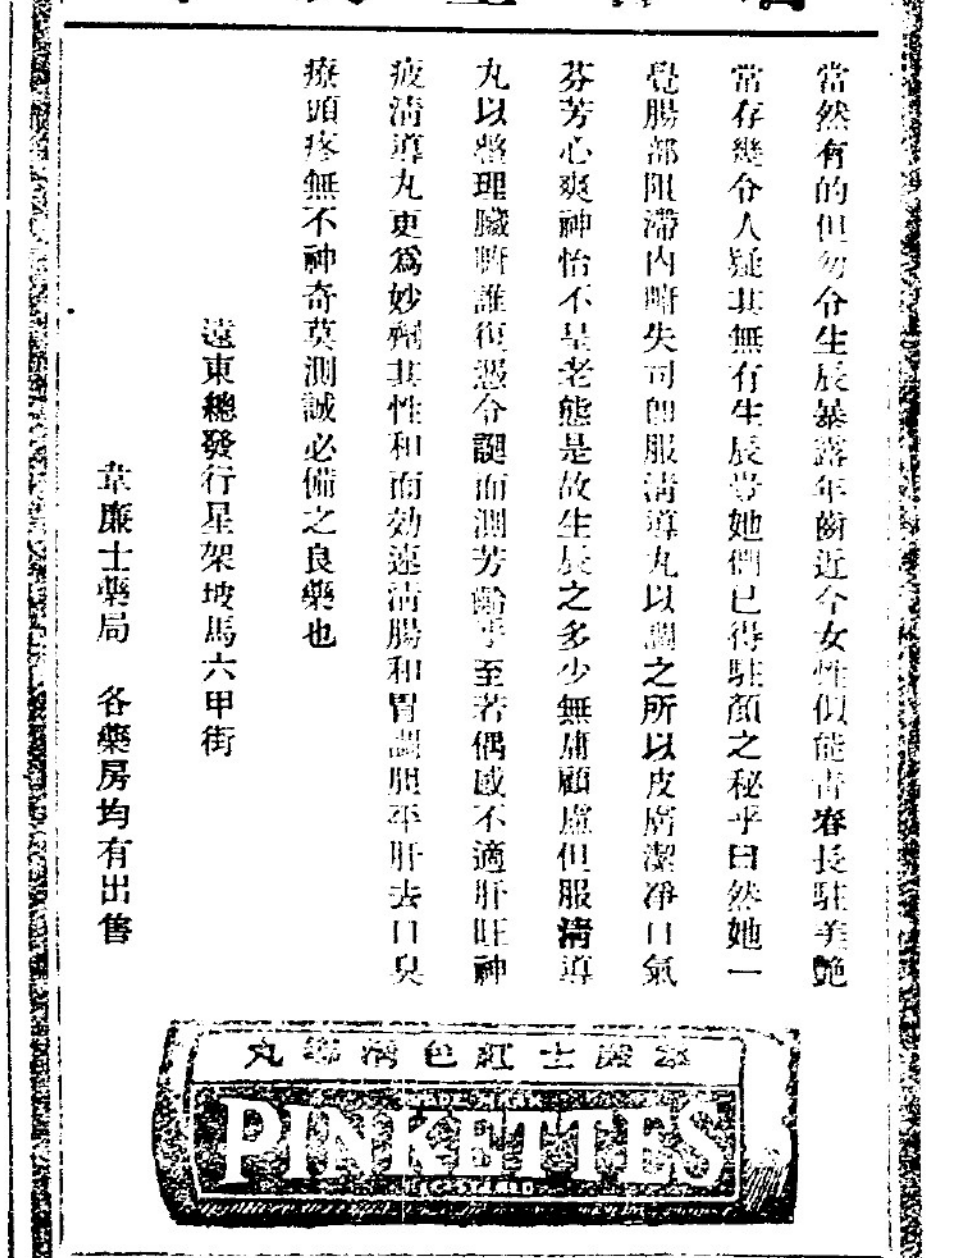 當然有的但勿令生辰暴露年齒近今女性似能青春長駐美艷
常存幾令人疑其無有生辰豈她們已得駐顏之秘乎曰然她一
覺腸部阻滯內暗失司卽服清導丸以調之所以皮膚潔淨口氣
芬芳心爽神怡不呈老態是故生辰之多少無庸顧慮但服清導
丸以整理臟腑誰復憑令誕而測芳齡乎至若偶感不適肝旺神
疲清導丸更爲妙劑其性和而効速清腸和胃調胆平肝去口臭
療頭疼無不神奇莫測誠必備之良藥也
遠東總發行星架坡馬六甲街
韋廉士藥局 各藥房均有出售
韋廉士紅色清導丸
TRADE MARK
PINKETTES